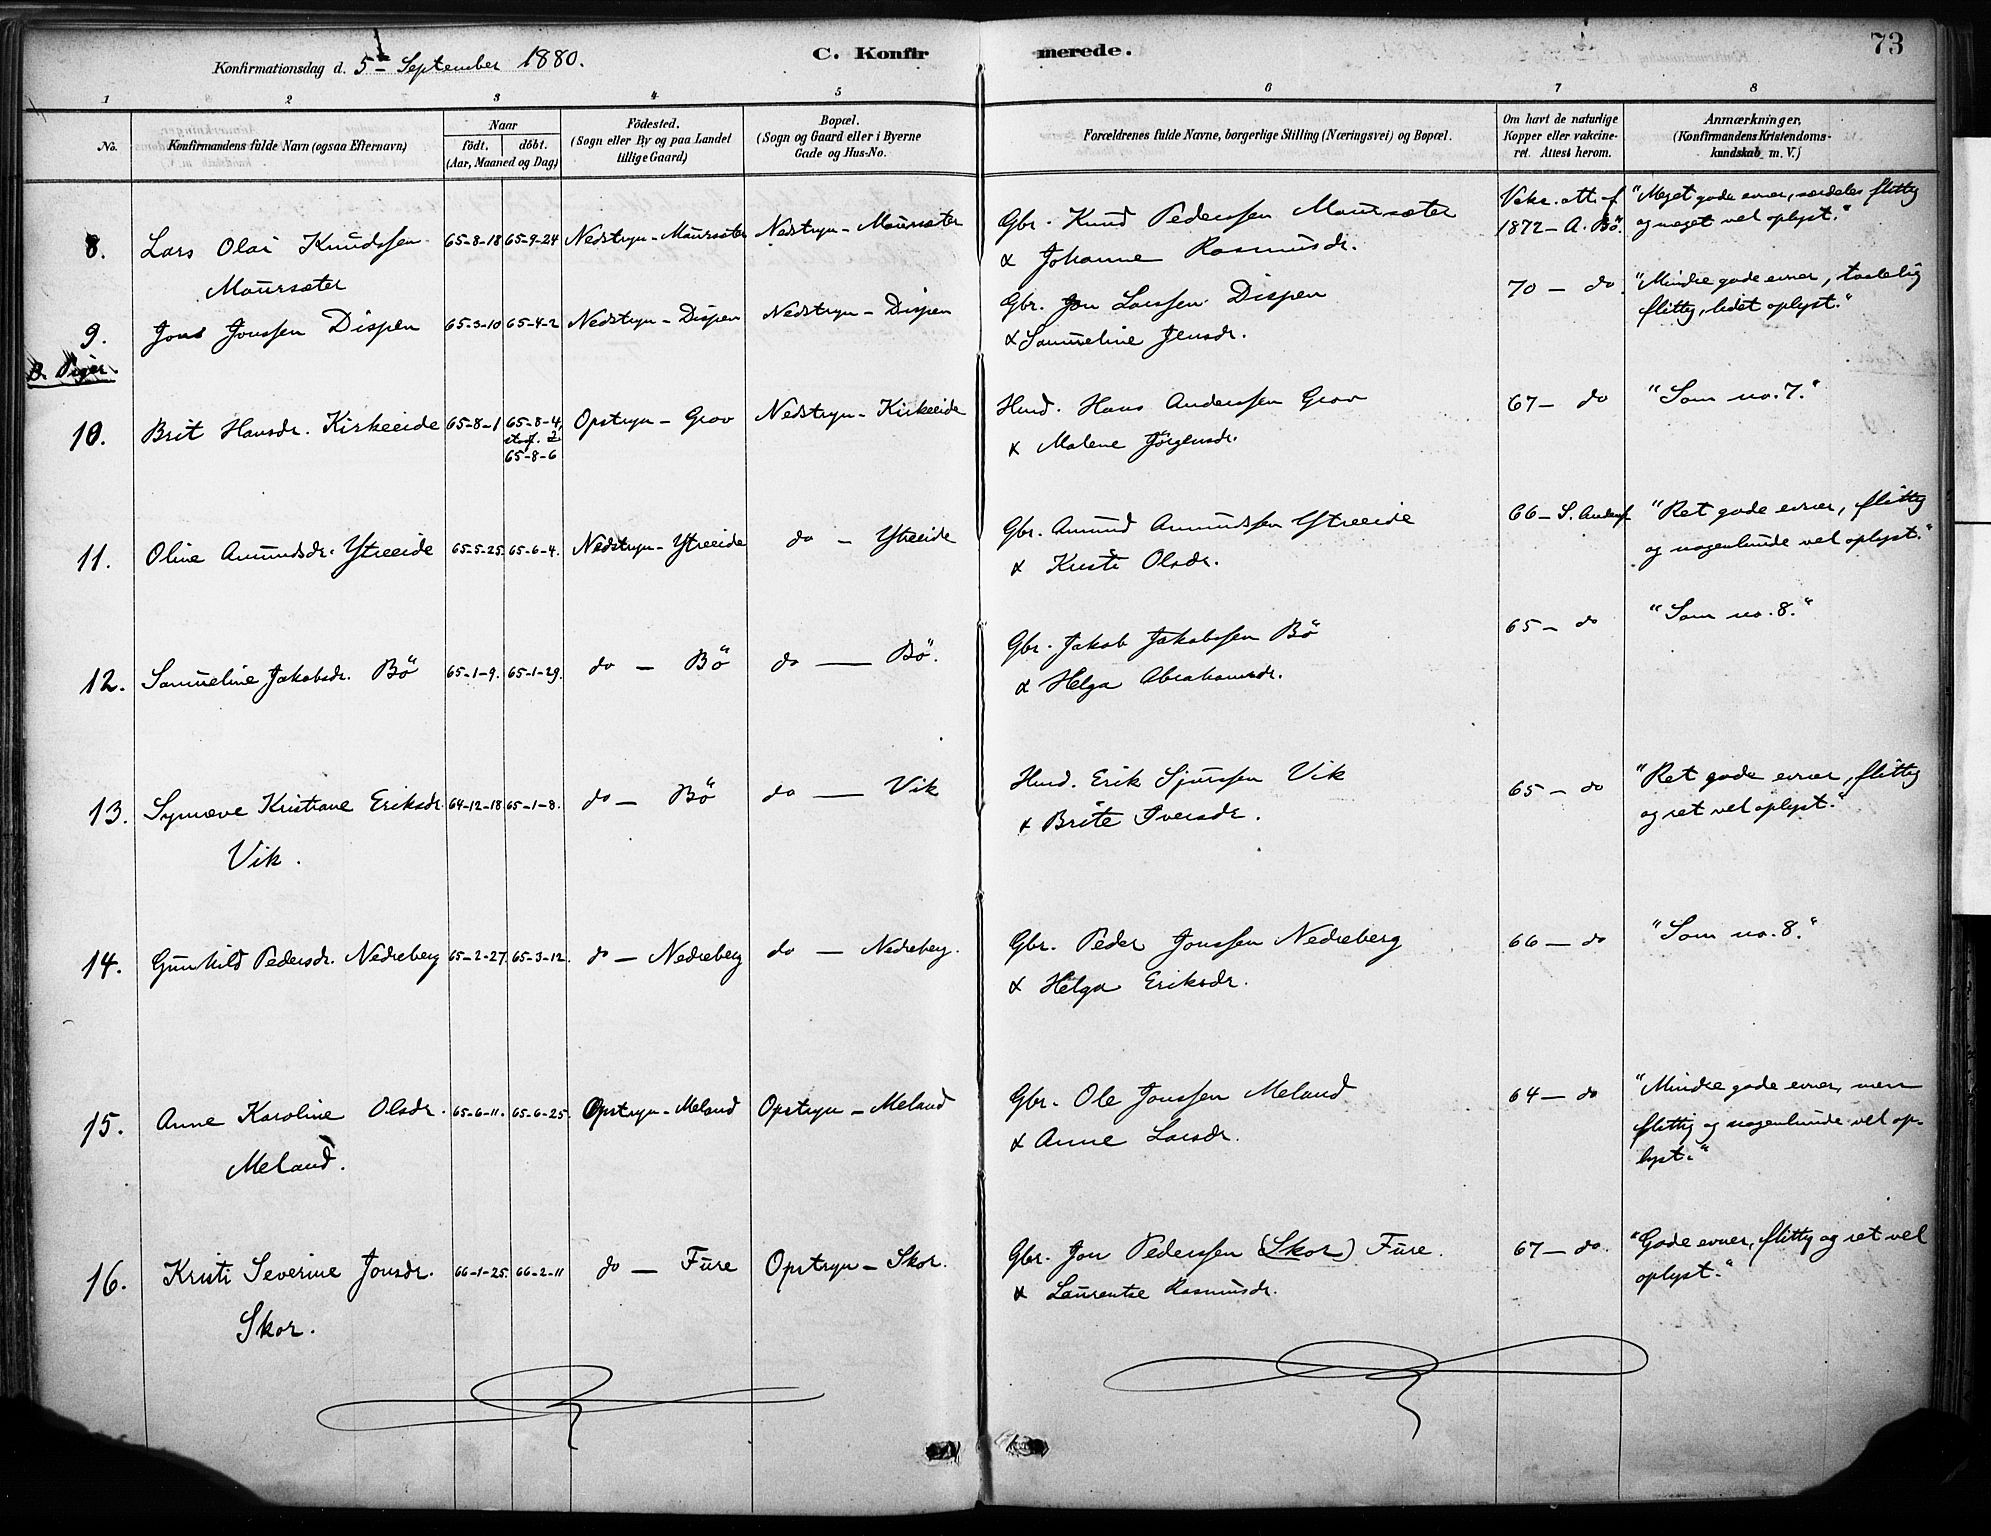 Konfirmationsdag d. 5te September 1880.
C. Konfirmerede.
73
1 2 3 4 5 6 7 8
No.
Konfirmandens fulde Navn (ogsaa Efternavn)
Naar
födt. döbt.
(Aar, Maaned og Dag)
Födested.
(Sogn eller By og paa Landet
tillige Gaard)
Bopæl.
(Sogn og Gaard eller i Byerne
Gade og Hus-No.
Forældrenes fulde Navne, borgerlige Stilling (Næringsvei) og Bopæl.
Om havt de naturlige
Kopper eller vakcine-
ret. Attest herom.
Anmærkninger,
(Konfirmandens Kristendoms-
kundskab m. V.)
8. Lars Olai Knudssen 65-8-18 65-9-24 Nedstryn - Maursæter Nedstryn - Maursæter Gbr. Knud Pederssen Maursæter Vakc. att. f. "Meget gode evner, særdeles flittig
Maursæter & Johanne Rasmusdr. 1872 - A. Bö. og meget vel oplyst."
9. Jons Jonssen Dispen 65-3-10 65-4-2 Nedstryn - Dispen Nedstryn - Dispen Gbr. Jon Larssen Dispen 70 - do. "Mindre gode evner, taalelig
& Samueline Jensdr. flittig, lidet oplyst."
B. Piger.
10. Brit Hansdr. Kirkeeide 65-8-1 65-8-4, Opstryn - Grov Nedstryn - Kirkeeide Hmd. Hans Anderssen Grov 67 - do "Som no. 7."
& Malene Jörgensdr.
65-8-6
11. Oline Amundsdr. Ytreeide 65-5-25 65-6-4. Nedstryn - Ytreeide do - Ytreeide Gbr. Amund Amundssen Ytreeide 66 - S. Anders. "Ret gode evner, flittig
& Kristi Olsdr. og nogenlunde vel oplyst."
12. Samueline Jakobsdr. Bö 65-1-9. 65-1-29. do - Bö do - Bö. Gbr. Jakob Jakobssen Bö 65 - do "Som no. 8."
& Helga Abrahamsdr.
13. Synneve Kristiane Eriksdr. 64-12-18 65-1-8. do - Bö do - Vik Hmd. Erik Sjurssen Vik 65 - do "Ret gode evner, flittig
Vik. & Brite Iversdr. og ret vel oplyst."
14. Gunhild Pedersdr. Nedreberg 65-2-27. 65-3-12. do - Nedreberg do - Nedreberg. Gbr. Peder Jonssen Nedreberg 66 - do "Som no. 8."
& Helga Eriksdr.
15. Anne Karoline Olsdr. 65-6-11. 65-6-25. Opstryn - Meland Opstryn - Meland Gbr. Ole Jonssen Meland 64 - do "Mindre gode evner, men
Meland. & Anne Larsdr. flittig og nogenlunde vel op-
lyst."
16. Kristi Severine Jonsdr. 66-1-25. 66-2-11 do - Fure Opstryn - Skor. Gbr. Jon Pederssen (Skor) Fure. 67 - do. "Gode evner, flittig og ret vel
Skor. & Laurentse Rasmusdr. oplyst."